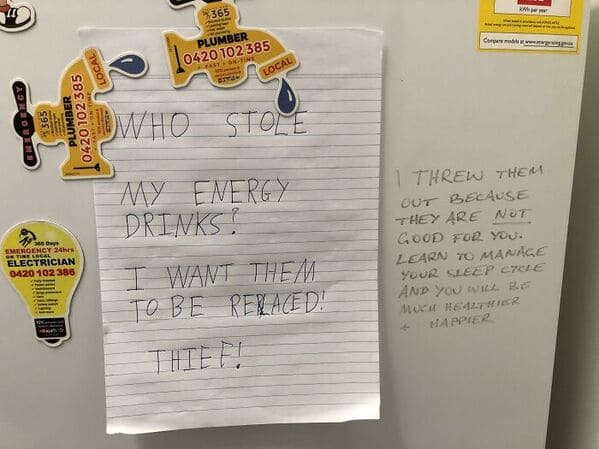 365
PLUMBER
0420 102 385
FAST • ON-TIME
LOCAL
EMERGENCY
365
PLUMBER
0420 102 385
FAST • ON-TIME
LOCAL
kWh per year
Compare models at www.energyrating.gov.au
WHO STOLE
MY ENERGY
DRINKS?
I WANT THEM
TO BE REPLACED!
THIEF!
I THREW THEM
OUT BECAUSE
THEY ARE NOT
GOOD FOR YOU.
LEARN TO MANAGE
YOUR SLEEP CYCLE
AND YOU WILL BE
MUCH HEALTHIER
+ HAPPIER
365 Days
EMERGENCY 24hrs
ON TIME LOCAL
ELECTRICIAN
0420 102 386